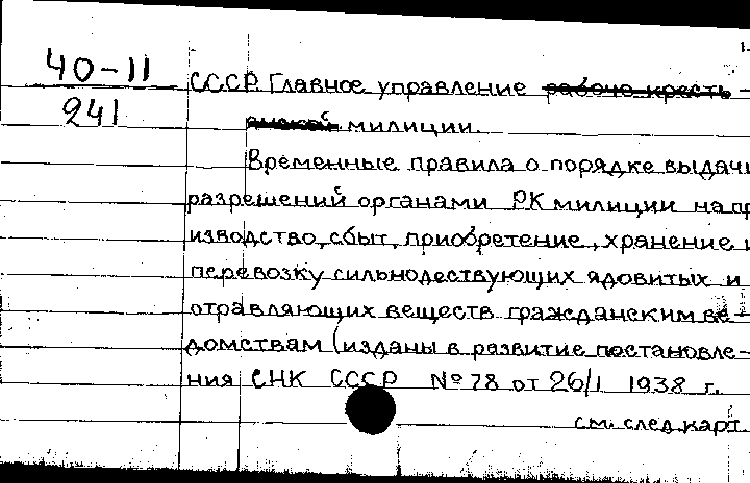 40-11
241
СССР. Главное управление рабоче-кресть-
янской милиции.
Временные правила о порядке выдачи
разрешений органами РК милиции на пр
изводство, сбыт, приобретение, хранение и
перевозку сильнодествующих ядовитых и
отравляющих веществ гражданским ве-
домствам (изданы в развитие постановле-
ния СНК СССР № 78 от 26/I 1938 г.
см. след. карт.